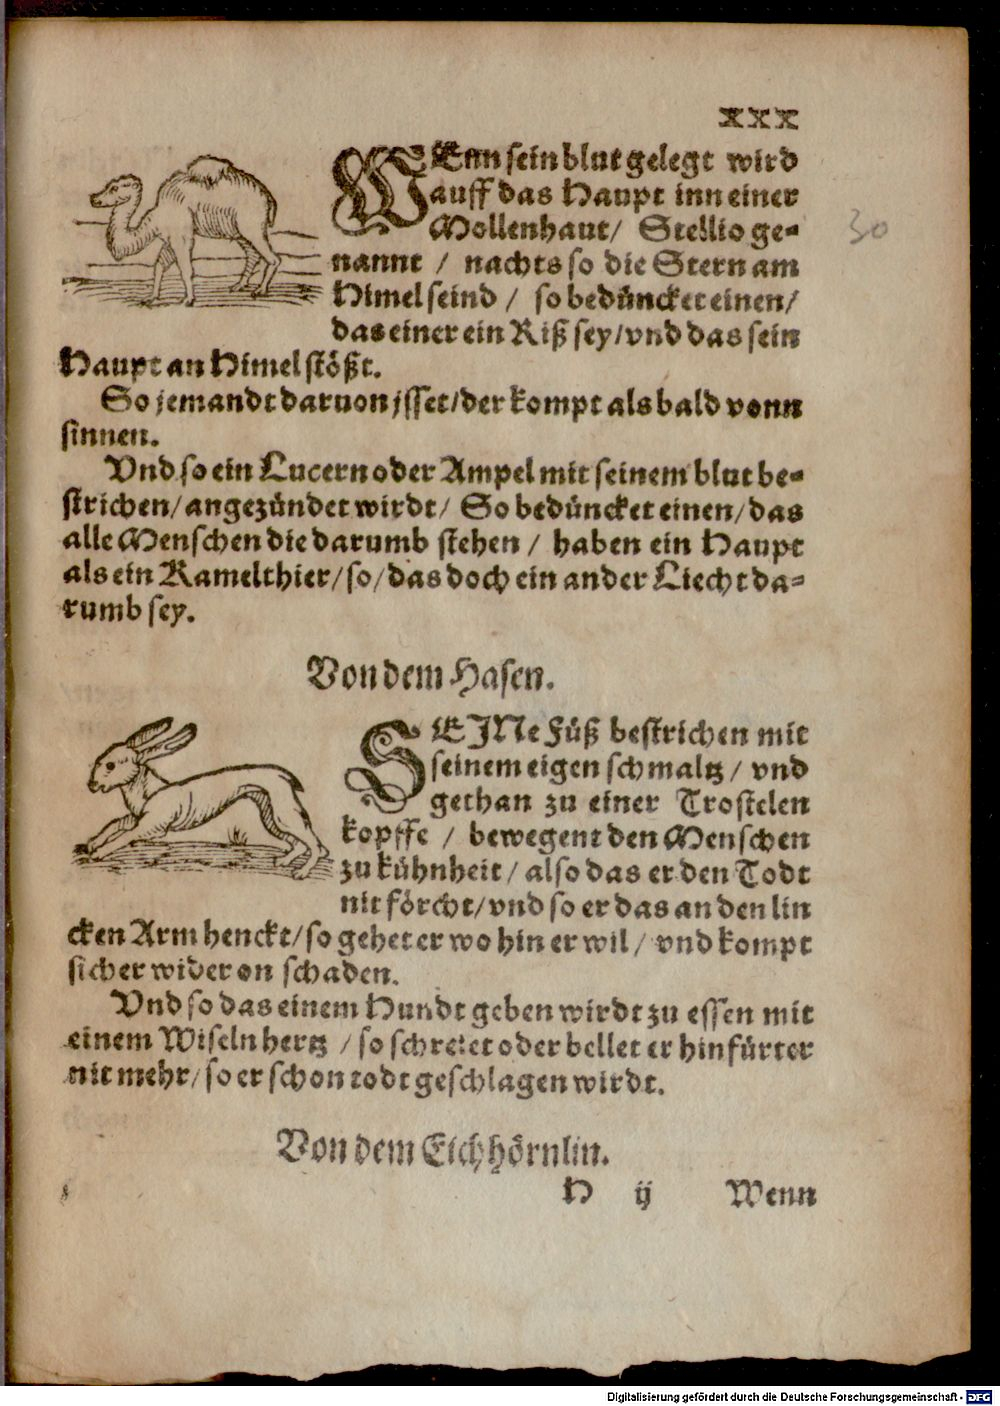 xxx
WEnn sein blut gelegt wird
auff das Haupt inn einer
Mollenhaut/ Stellio ge-
nannt / nachts so die Stern am
Himel seind / so bedüncket einen/
das einer ein Riß sey/vnd das sein
Haupt an Himel stößt.
So jemandt daruon jsset/der kompt als bald vonn
sinnen.
Vnd so ein Lucern oder Ampel mit seinem blut be-
strichen/angezündet wirdt/ So bedüncket einen/das
alle Menschen die darumb stehen / haben ein Haupt
als ein Kamelthier/so/das doch ein ander Liecht da-
rumb sey.
30
Von dem Hasen.
SEJNe Füß bestrichen mit
seinem eigen schmaltz / vnd
gethan zu einer Trostelen
kopffe / bewegent den Menschen
zu kühnheit / also das er den Todt
nit förcht/vnd so er das an den lin
cken Arm henckt/so gehet er wo hin er wil / vnd kompt
sicher wider on schaden.
Vnd so das einem Hundt geben wirdt zu essen mit
einem Wiseln hertz / so schreiet oder bellet er hinfürter
nit mehr/so er schon todt geschlagen wirdt.
Von dem Eichhörnlin.
H ij Wenn
Digitalisierung gefördert durch die Deutsche Forschungsgemeinschaft - DFG